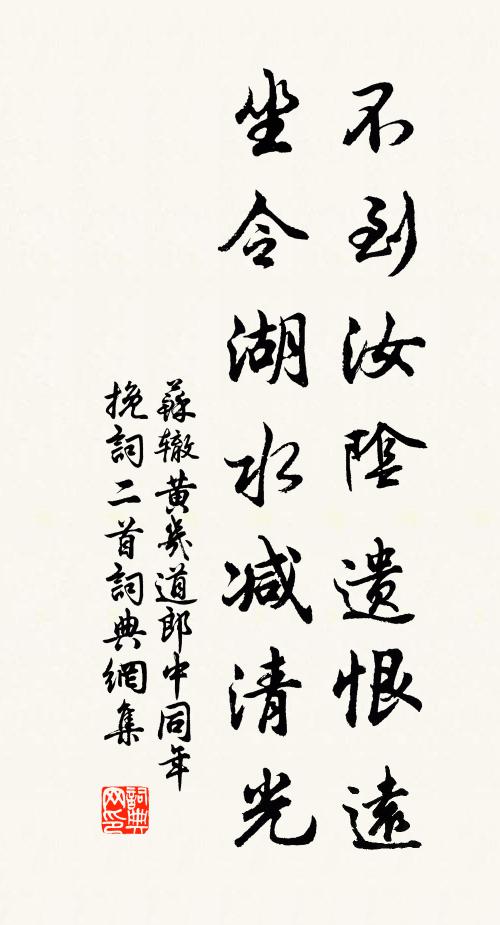 不到汝陰遗恨遠
坐令湖水减清光
蘇辙黄幾道郎中同年
挽詞二首詞典網集
詞典网印